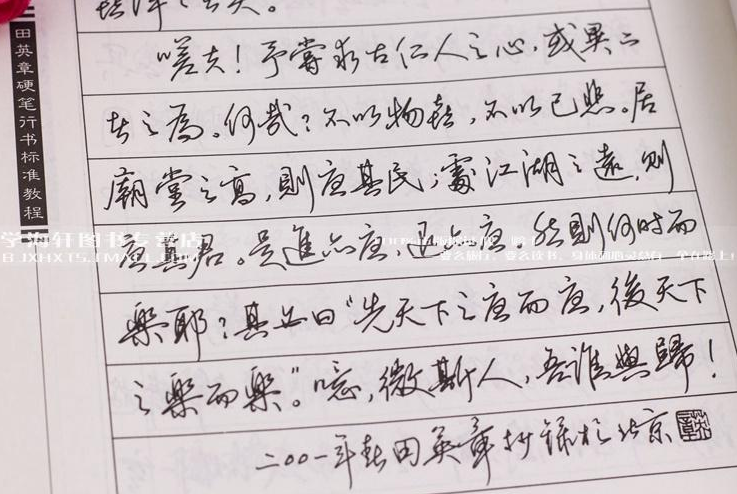 田英章硬笔行书标准教程
者矣。
嗟夫！予嘗求古仁人之心，或異二
者之為。何哉？不以物喜，不以己悲。居
廟堂之高，則憂其民；處江湖之遠，則
憂其君。是進亦憂，退亦憂 然則何時而
樂耶？其必曰“先天下之憂而憂，後天下
之樂而樂”。噫，微斯人，吾誰與歸！
二〇〇一年春田英章抄錄於北京
学海轩图书专营店
BJXHXTS.TMALL.COM
要么旅行，要么读书，身体和心灵总有一个在路上